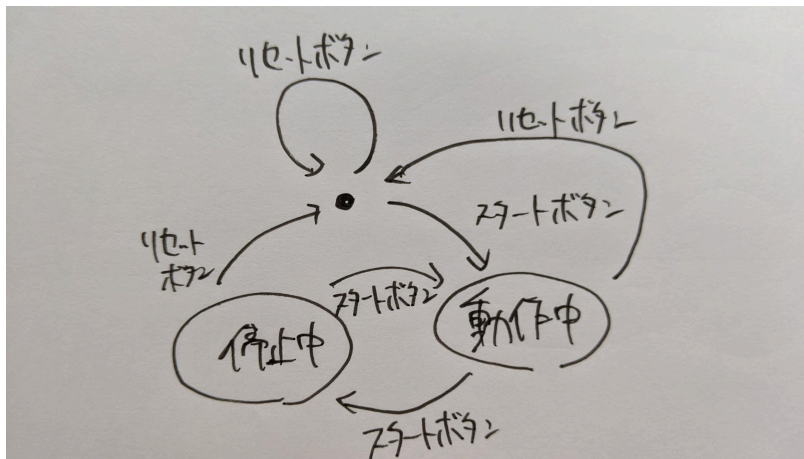 リセットボタン
リセットボタン
スタートボタン
リセット
ボタン
スタートボタン
停止中
動作中
スタートボタン